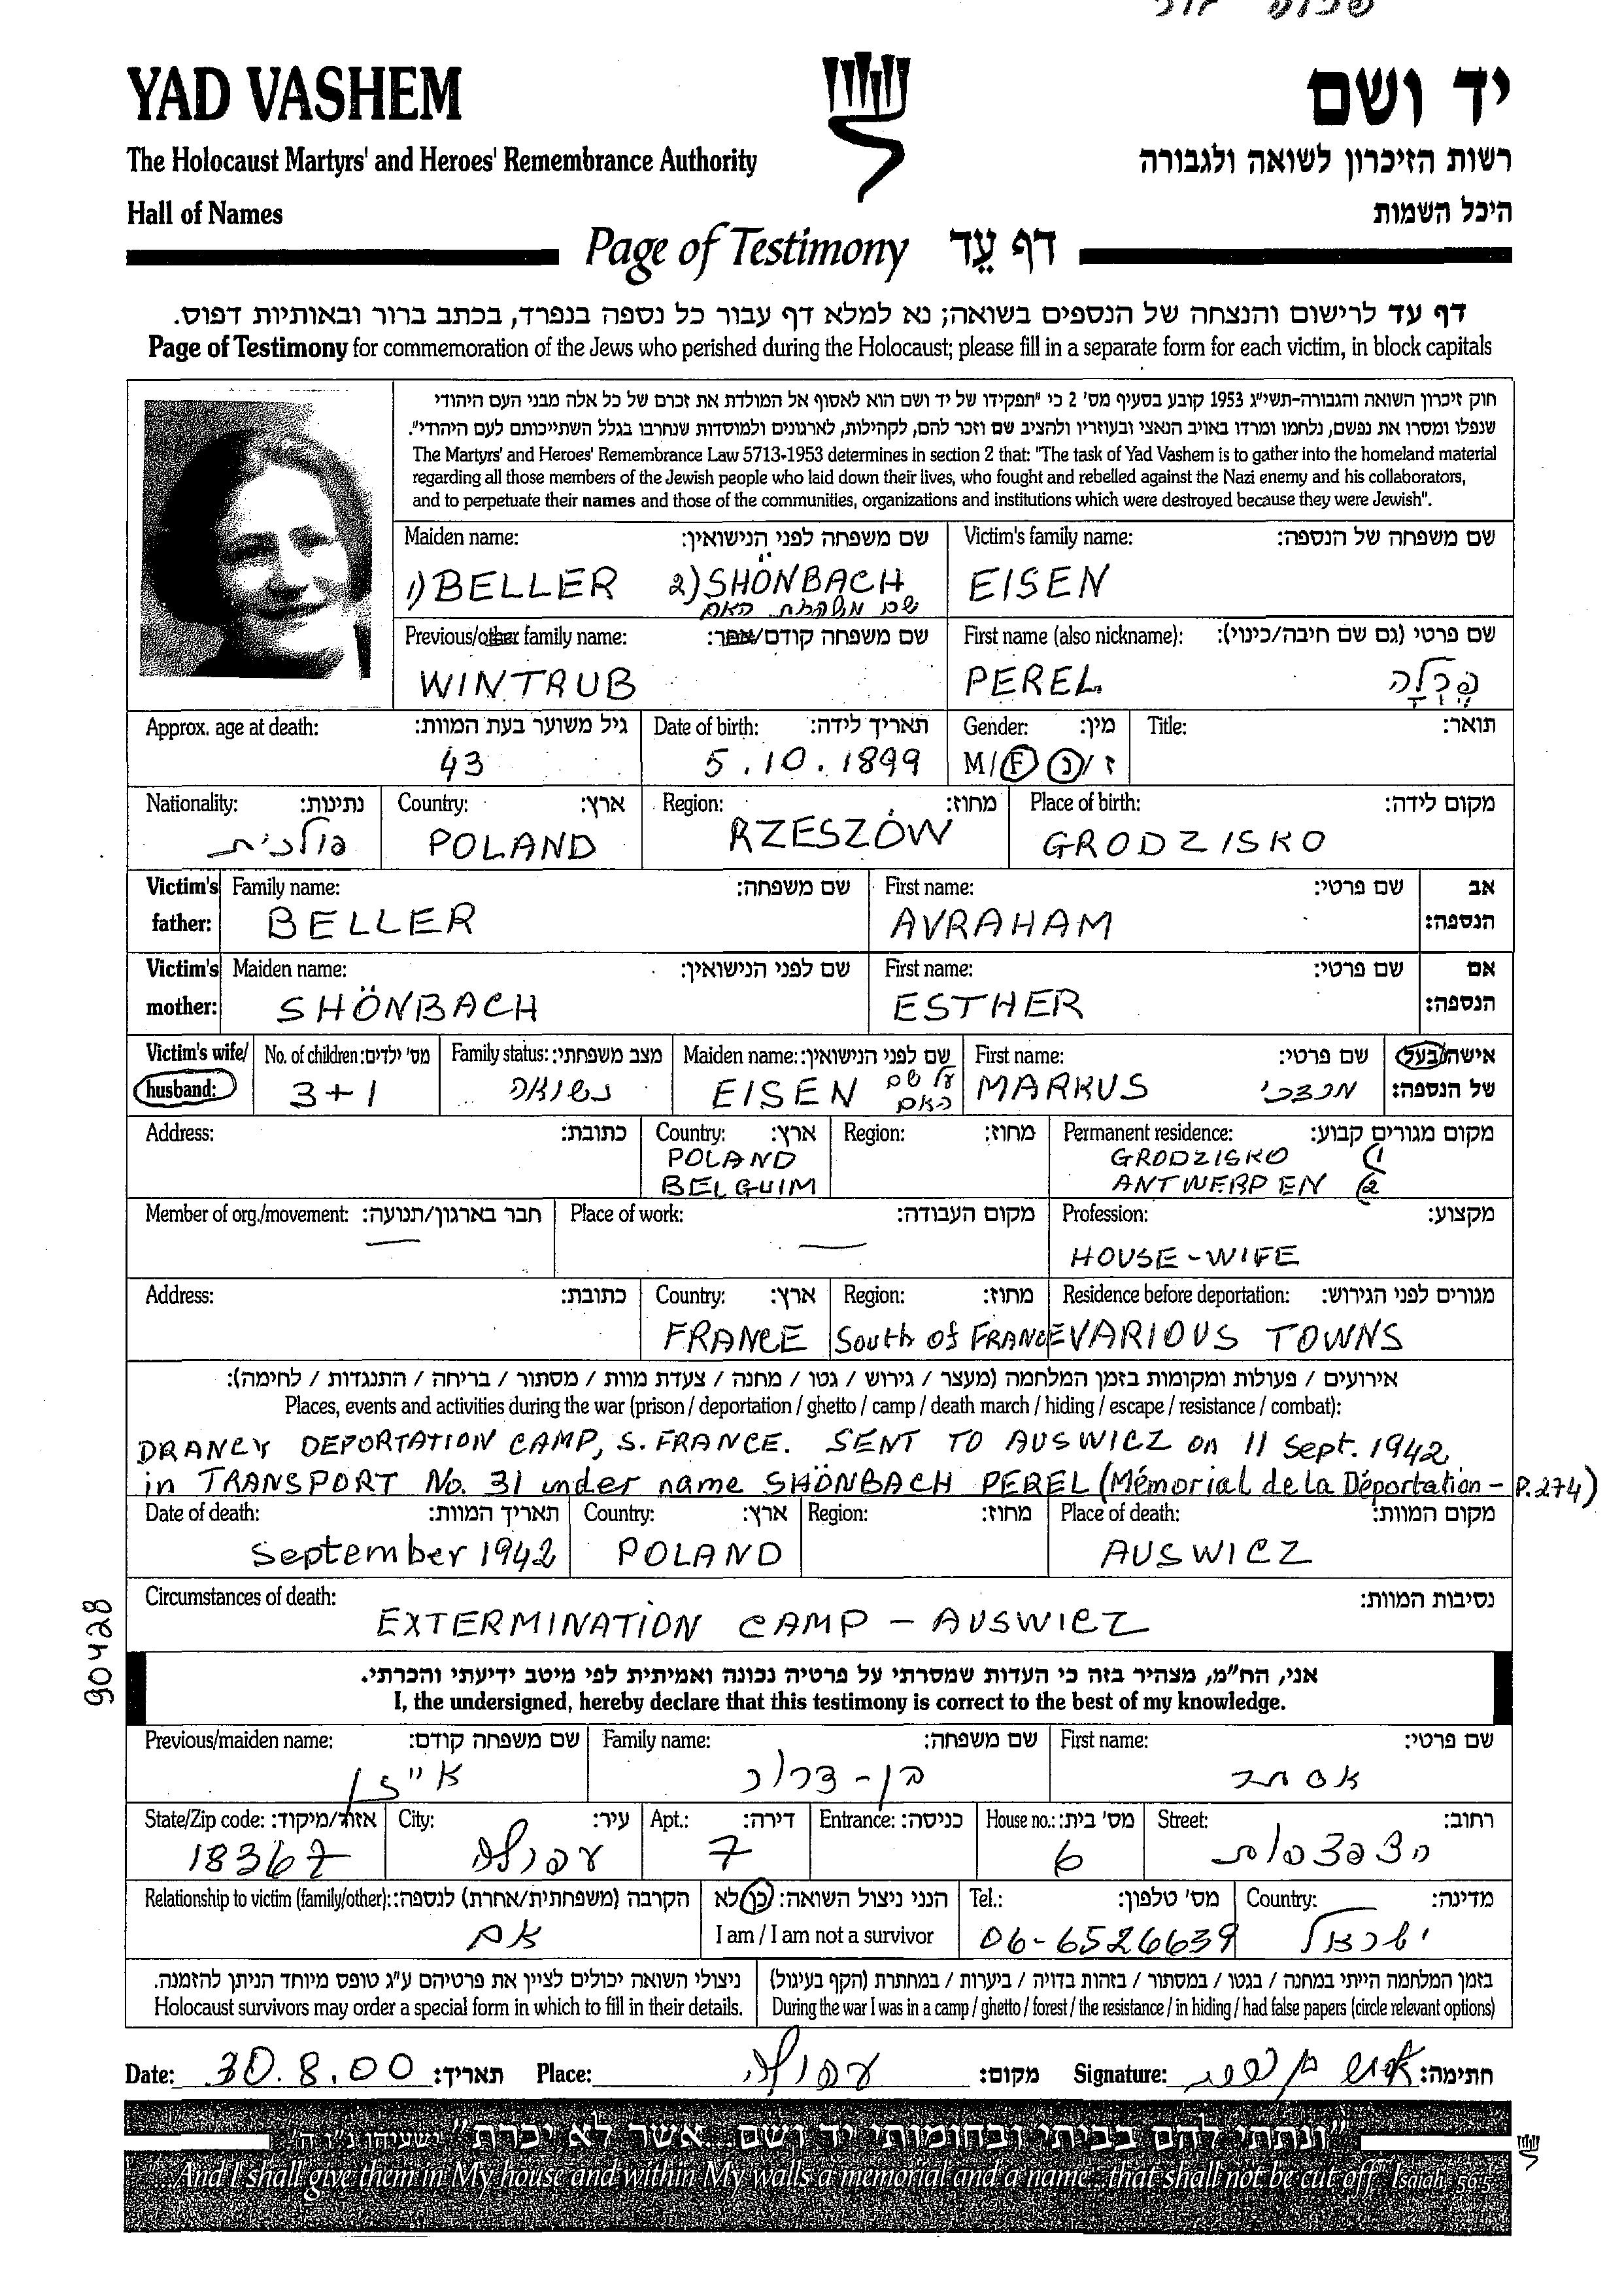 YAD VASHEM
יד ושם
The Holocaust Martyrs' and Heroes' Remembrance Authority
רשות הזיכרון לשואה ולגבורה
Hall of Names
היכל השמות
Page of Testimony דף עֵד
דף עד לרישום והנצחה של הנספים בשואה; נא למלא דף עבור כל נספה בנפרד, בכתב ברור ובאותיות דפוס.
Page of Testimony for commemoration of the Jews who perished during the Holocaust; please fill in a separate form for each victim, in block capitals
חוק זיכרון השואה והגבורה-תשי״ג 1953 קובע בסעיף מס' 2 כי ״תפקידו של יד ושם הוא לאסוף אל המולדת את זכרם של כל אלה מבני העם היהודי
שנפלו ומסרו את נפשם, נלחמו ומרדו באויב הנאצי ובעוזריו ולהציב שם וזכר להם, לקהילות, לארגונים ולמוסדות שנחרבו בגלל השתייכותם לעם היהודי״.
The Martyrs' and Heroes' Remembrance Law 5713-1953 determines in section 2 that: "The task of Yad Vashem is to gather into the homeland material
regarding all those members of the Jewish people who laid down their lives, who fought and rebelled against the Nazi enemy and his collaborators,
and to perpetuate their names and those of the communities, organizations and institutions which were destroyed because they were Jewish".
Maiden name: שם משפחה לפני הנישואין: Victim's family name: שם משפחה של הנספה:
1) BELLER 2) SHÖNBACH EISEN
שם משפחת האם
Previous/other family name: שם משפחה קודם/אחר: First name (also nickname): שם פרטי (גם שם חיבה/כינוי):
WINTRUB PEREL פֶּרְלָה
Approx. age at death: גיל משוער בעת המוות: Date of birth: תאריך לידה: Gender: מין: Title: תואר:
43 5.10.1899 M/F ז/נ
Nationality: נתינות: Country: ארץ: Region: מחוז: Place of birth: מקום לידה:
פולנית POLAND RZESZÓW GRODZISKO
Victim's father: Family name: שם משפחה: First name: שם פרטי: אב הנספה:
BELLER AVRAHAM
Victim's mother: Maiden name: שם לפני הנישואין: First name: שם פרטי: אם הנספה:
SHÖNBACH ESTHER
Victim's wife/ husband: No. of children: מס' ילדים: Family status: מצב משפחתי: Maiden name: שם לפני הנישואין: First name: שם פרטי: אישה/בעל של הנספה:
3+1 נשואה EISEN על שם האם MARKUS
Address: כתובת: Country: ארץ: Region: מחוז: Permanent residence: מקום מגורים קבוע:
POLAND GRODZISKO (1
BELGUIM ANTWERPEN (2
Member of org./movement: חבר בארגון/תנועה: Place of work: מקום העבודה: Profession: מקצוע:
— — HOUSE-WIFE
Address: כתובת: Country: ארץ: Region: מחוז: Residence before deportation: מגורים לפני הגירוש:
FRANCE South of FRANCE VARIOUS TOWNS
אירועים / פעולות ומקומות בזמן המלחמה (מעצר / גירוש / גטו / מחנה / צעדת מוות / מסתור / בריחה / התנגדות / לחימה):
Places, events and activities during the war (prison / deportation / ghetto / camp / death march / hiding / escape / resistance / combat):
DRANCY DEPORTATION CAMP, S. FRANCE. SENT TO AUSWICZ on 11 Sept. 1942
in TRANSPORT No. 31 under name SHÖNBACH PEREL (Mémorial de la Déportation - P.274)
Date of death: תאריך המוות: Country: ארץ: Region: מחוז: Place of death: מקום המוות:
September 1942 POLAND AUSWICZ
Circumstances of death: נסיבות המוות:
EXTERMINATION CAMP - AUSWICZ
90428
אני, הח״מ, מצהיר בזה כי העדות שמסרתי על פרטיה נכונה ואמיתית לפי מיטב ידיעתי והכרתי.
I, the undersigned, hereby declare that this testimony is correct to the best of my knowledge.
Previous/maiden name: שם משפחה קודם: Family name: שם משפחה: First name: שם פרטי:
אייזן בן-דרור אסתר
State/Zip code: אזור/מיקוד: City: עיר: Apt.: דירה: Entrance: כניסה: House no.: מס' בית: Street: רחוב:
18367 עפולה 7 6 הצפצפות
Relationship to victim (family/other): הקרבה (משפחתית/אחרת) לנספה: הנני ניצול השואה: כן/לא Tel.: מס' טלפון: Country: מדינה:
אם I am / I am not a survivor 06-6526639 ישראל
ניצולי השואה יכולים לציין את פרטיהם ע״ג טופס מיוחד הניתן להזמנה. בזמן המלחמה הייתי במחנה / בגטו / במסתור / בזהות בדויה / ביערות / במחתרת (הקף בעיגול)
Holocaust survivors may order a special form in which to fill in their details. During the war I was in a camp / ghetto / forest / the resistance / in hiding / had false papers (circle relevant options)
Date: 30.8.00 תאריך: Place: עפולה מקום: Signature: חתימה:
״ונתתי להם בביתי ובחומותי יד ושם...אשר לא יכרת״ ישעיהו נ״ו ה'
And I shall give them in My house and within My walls a memorial and a name...that shall not be cut off" Isaiah, 56:5